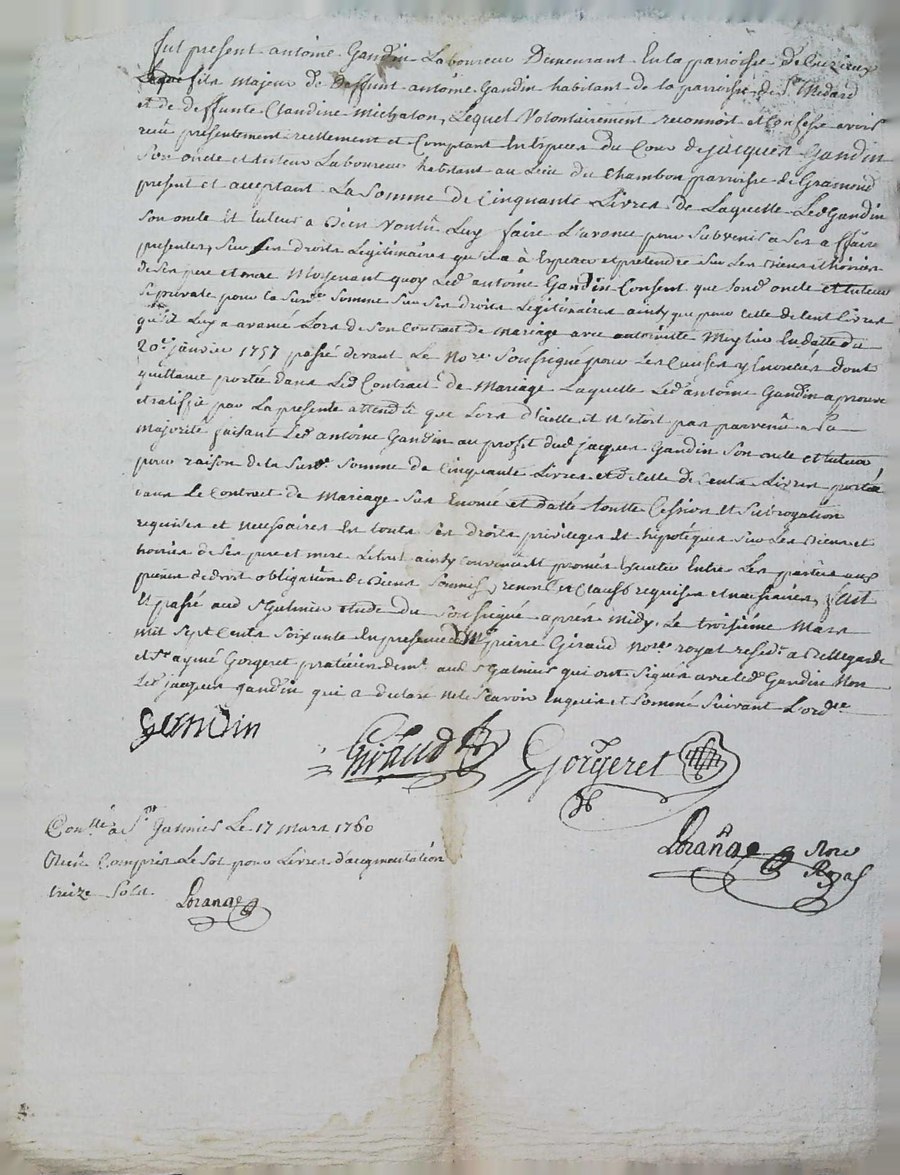 fut present antoine Gandin Laboureur Demeurant En la parroisse de Cuzieux
fils majeur de deffunt antoine Gandin habitant de la parroisse de St Medard
et de deffunte Claudine Michalon, Lequel Volontairement reconnoit et Confesse avoir
reçu presentement reellement et Comptant En Especes du Cour de jacques Gandin
Son oncle et tuteur Laboureur habitant au Lieu du Chambon parroisse de Gramond
present et acceptant La Somme de Cinquante Livres de Laquelle Led Gandin
Son oncle Et tuteur a bien voulu Luy faire L'avance pour Subvenir a Ses affaires
presentes, Sur Ses droits Legitimaires qu'il a à Esperer et pretendre Sur Les biens et hoiries
de Ses pere et mere Moyenant quoy Led antoine Gandin Consent que Sond oncle et tuteur
Se privale pour la Susd Somme Sur Ses droits Legitimaires ainsy que pour Celle de Cent Livres
qu'il Luy a avancé Lors de Son Contract de Mariage avec antoinette En datte du
20e janvier 1757 passé devant Le Nore Soussigné pour Les Causes y Enoncées dont
quittance portée dans Led Contract de Mariage Laquelle Led antoine Gandin aprouve
et ratiffie par La presente attendu que Lors d'icelle il N'etoit pas parvenu a Sa
Majorité faisant Led antoine Gandin au profit dud jacques Gandin Son oncle et tuteur
pour raison de la Susd Somme de Cinquante Livres et de Celle de Cents Livres portée
dans Le Contract de Mariage Sus Enoncé et datté toutte Cession et Subrogation
requises et necessaires En touts Ses droits privileges et hipoteques Sur Les biens et
hoiries de Ses pere et mere Le tout ainsy Convenu et promis Executer Entre Les parties aux
peines de droit obligation de biens Soumis, renonc et Clauses requises et necessaires, fait
Et passé aud St Galmier Etude du Soussigné après Midy Le troisieme Mars
mil Sept Cents Soixante En presence de Me pierre Giraud Nore royal resedt a Bellegarde
et Sr aymé Gorgeret praticien demt aud St Galmier qui ont Signés avec led Gandin Non
Led jacques Gandin qui a declaré ne le Scavoir Enquis et Sommé Suivant L'ordce
gandin
Giraud
Gorgeret
Lorange Nore
Royal
Conllé à St Galmier Le 17 Mars 1760
Reçu Compris Le Sol pour Livres d'augmentation
treize Sols
Lorange